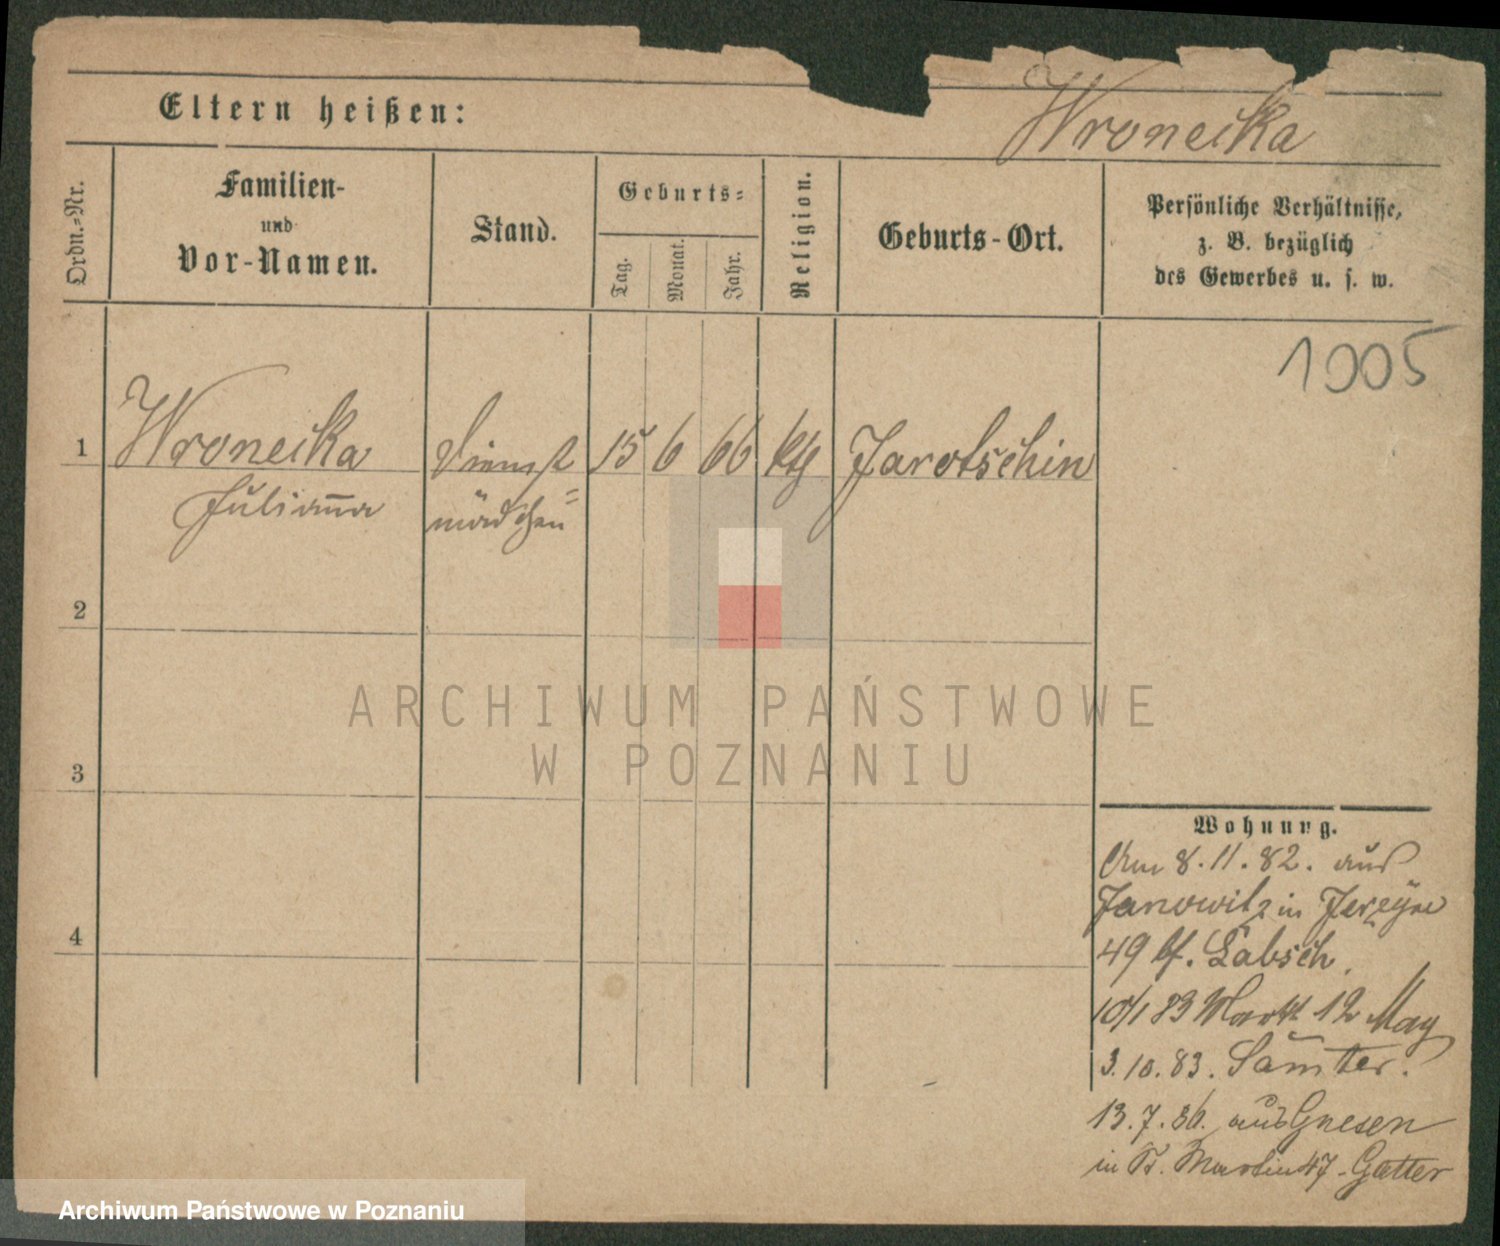 Eltern heißen:
Wronecka
Ordn.-Nr.
Familien-
und
Vor-Namen.
Stand.
Geburts-
Tag.
Monat.
Jahr.
Religion.
Geburts-Ort.
Persönliche Verhältnisse,
z. B. bezüglich
des Gewerbes u. s. w.
1005
1 Wronecka Dienst 15 6 66 kth Jarotschin
Julianna mädchen
2
3
4
Wohnung.
Am 8.11.82. aus
Janowitz in
49 bf. Labsch.
10/1 83 Markt 12 May
3.10.83. Samter.
13.7.86. aus Gnesen
in St. Martin 47. Gatter
ARCHIWUM PAŃSTWOWE
W POZNANIU
Archiwum Państwowe w Poznaniu